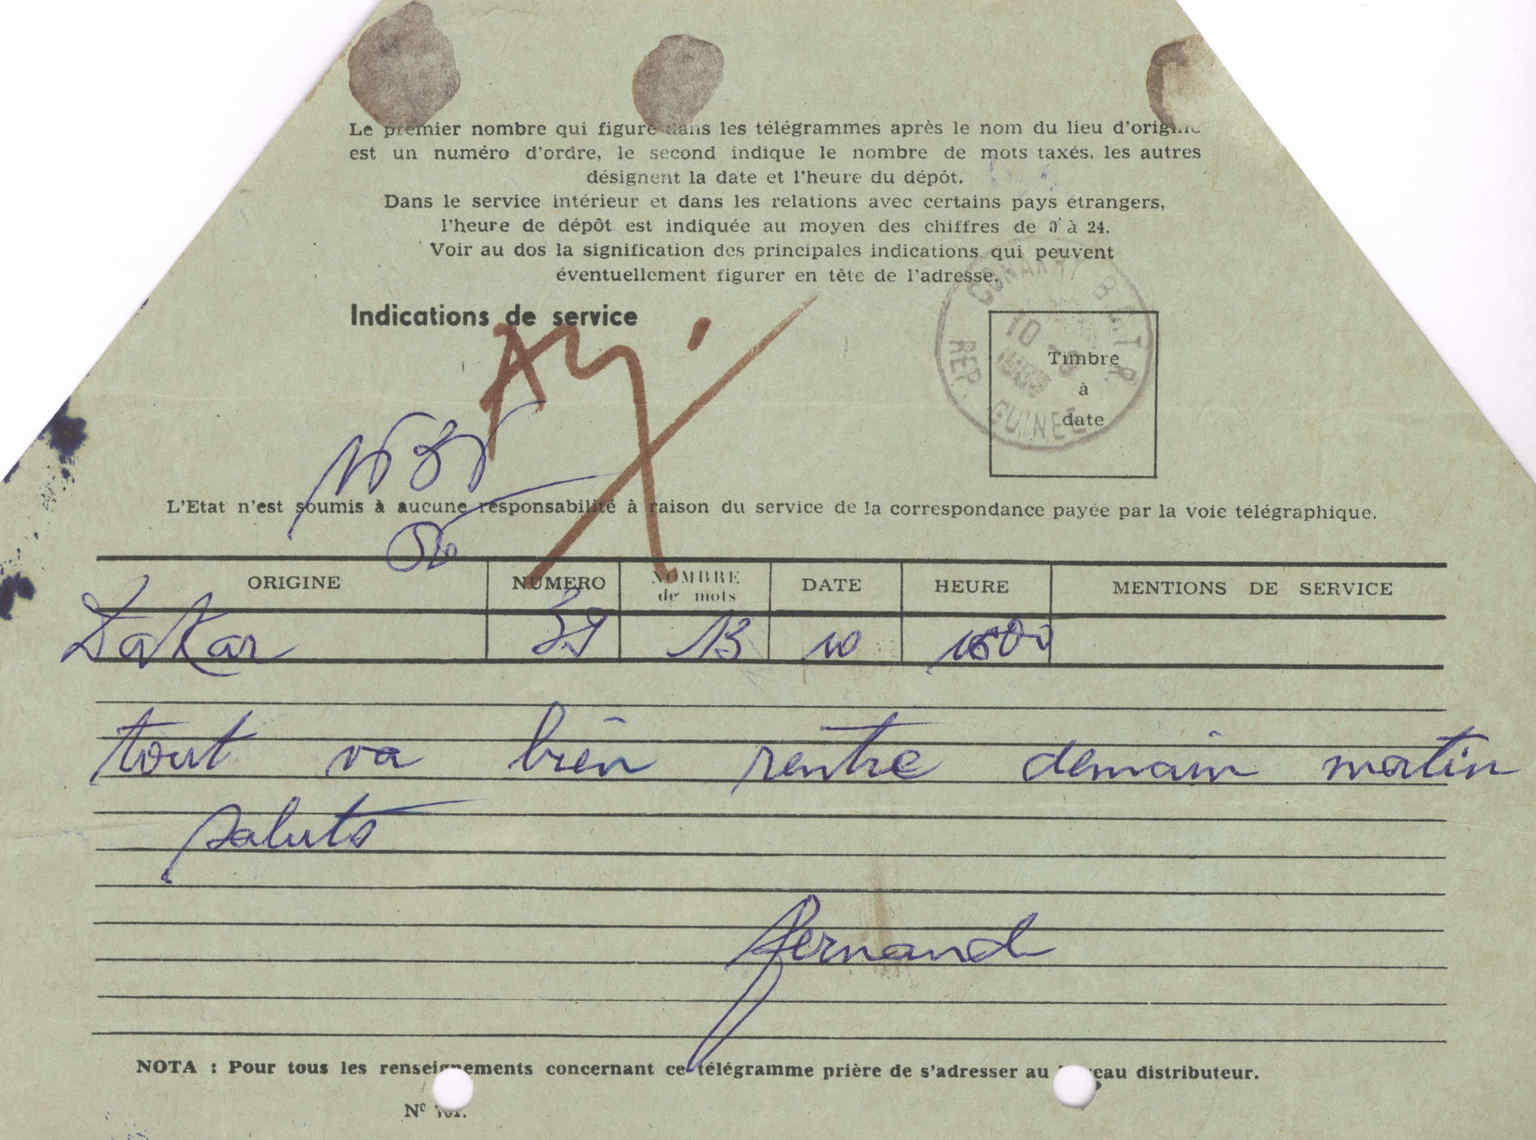 Le premier nombre qui figure dans les télégrammes après le nom du lieu d'origine
est un numéro d'ordre, le second indique le nombre de mots taxés, les autres
désignent la date et l'heure du dépôt.
Dans le service intérieur et dans les relations avec certains pays étrangers,
l'heure de dépôt est indiquée au moyen des chiffres de 0 à 24.
Voir au dos la signification des principales indications qui peuvent
éventuellement figurer en tête de l'adresse.
Indications de service
CONAKRY
REP. GUINEE
10
Timbre
à
date
L'Etat n'est soumis à aucune responsabilité à raison du service de la correspondance payée par la voie télégraphique.
ORIGINE NUMERO NOMBRE de mots DATE HEURE MENTIONS DE SERVICE
Dakar 39 13 10 1600
tout va bien rentre demain matin
saluts
fernand
NOTA : Pour tous les renseignements concernant ce télégramme prière de s'adresser au bureau distributeur.
N°